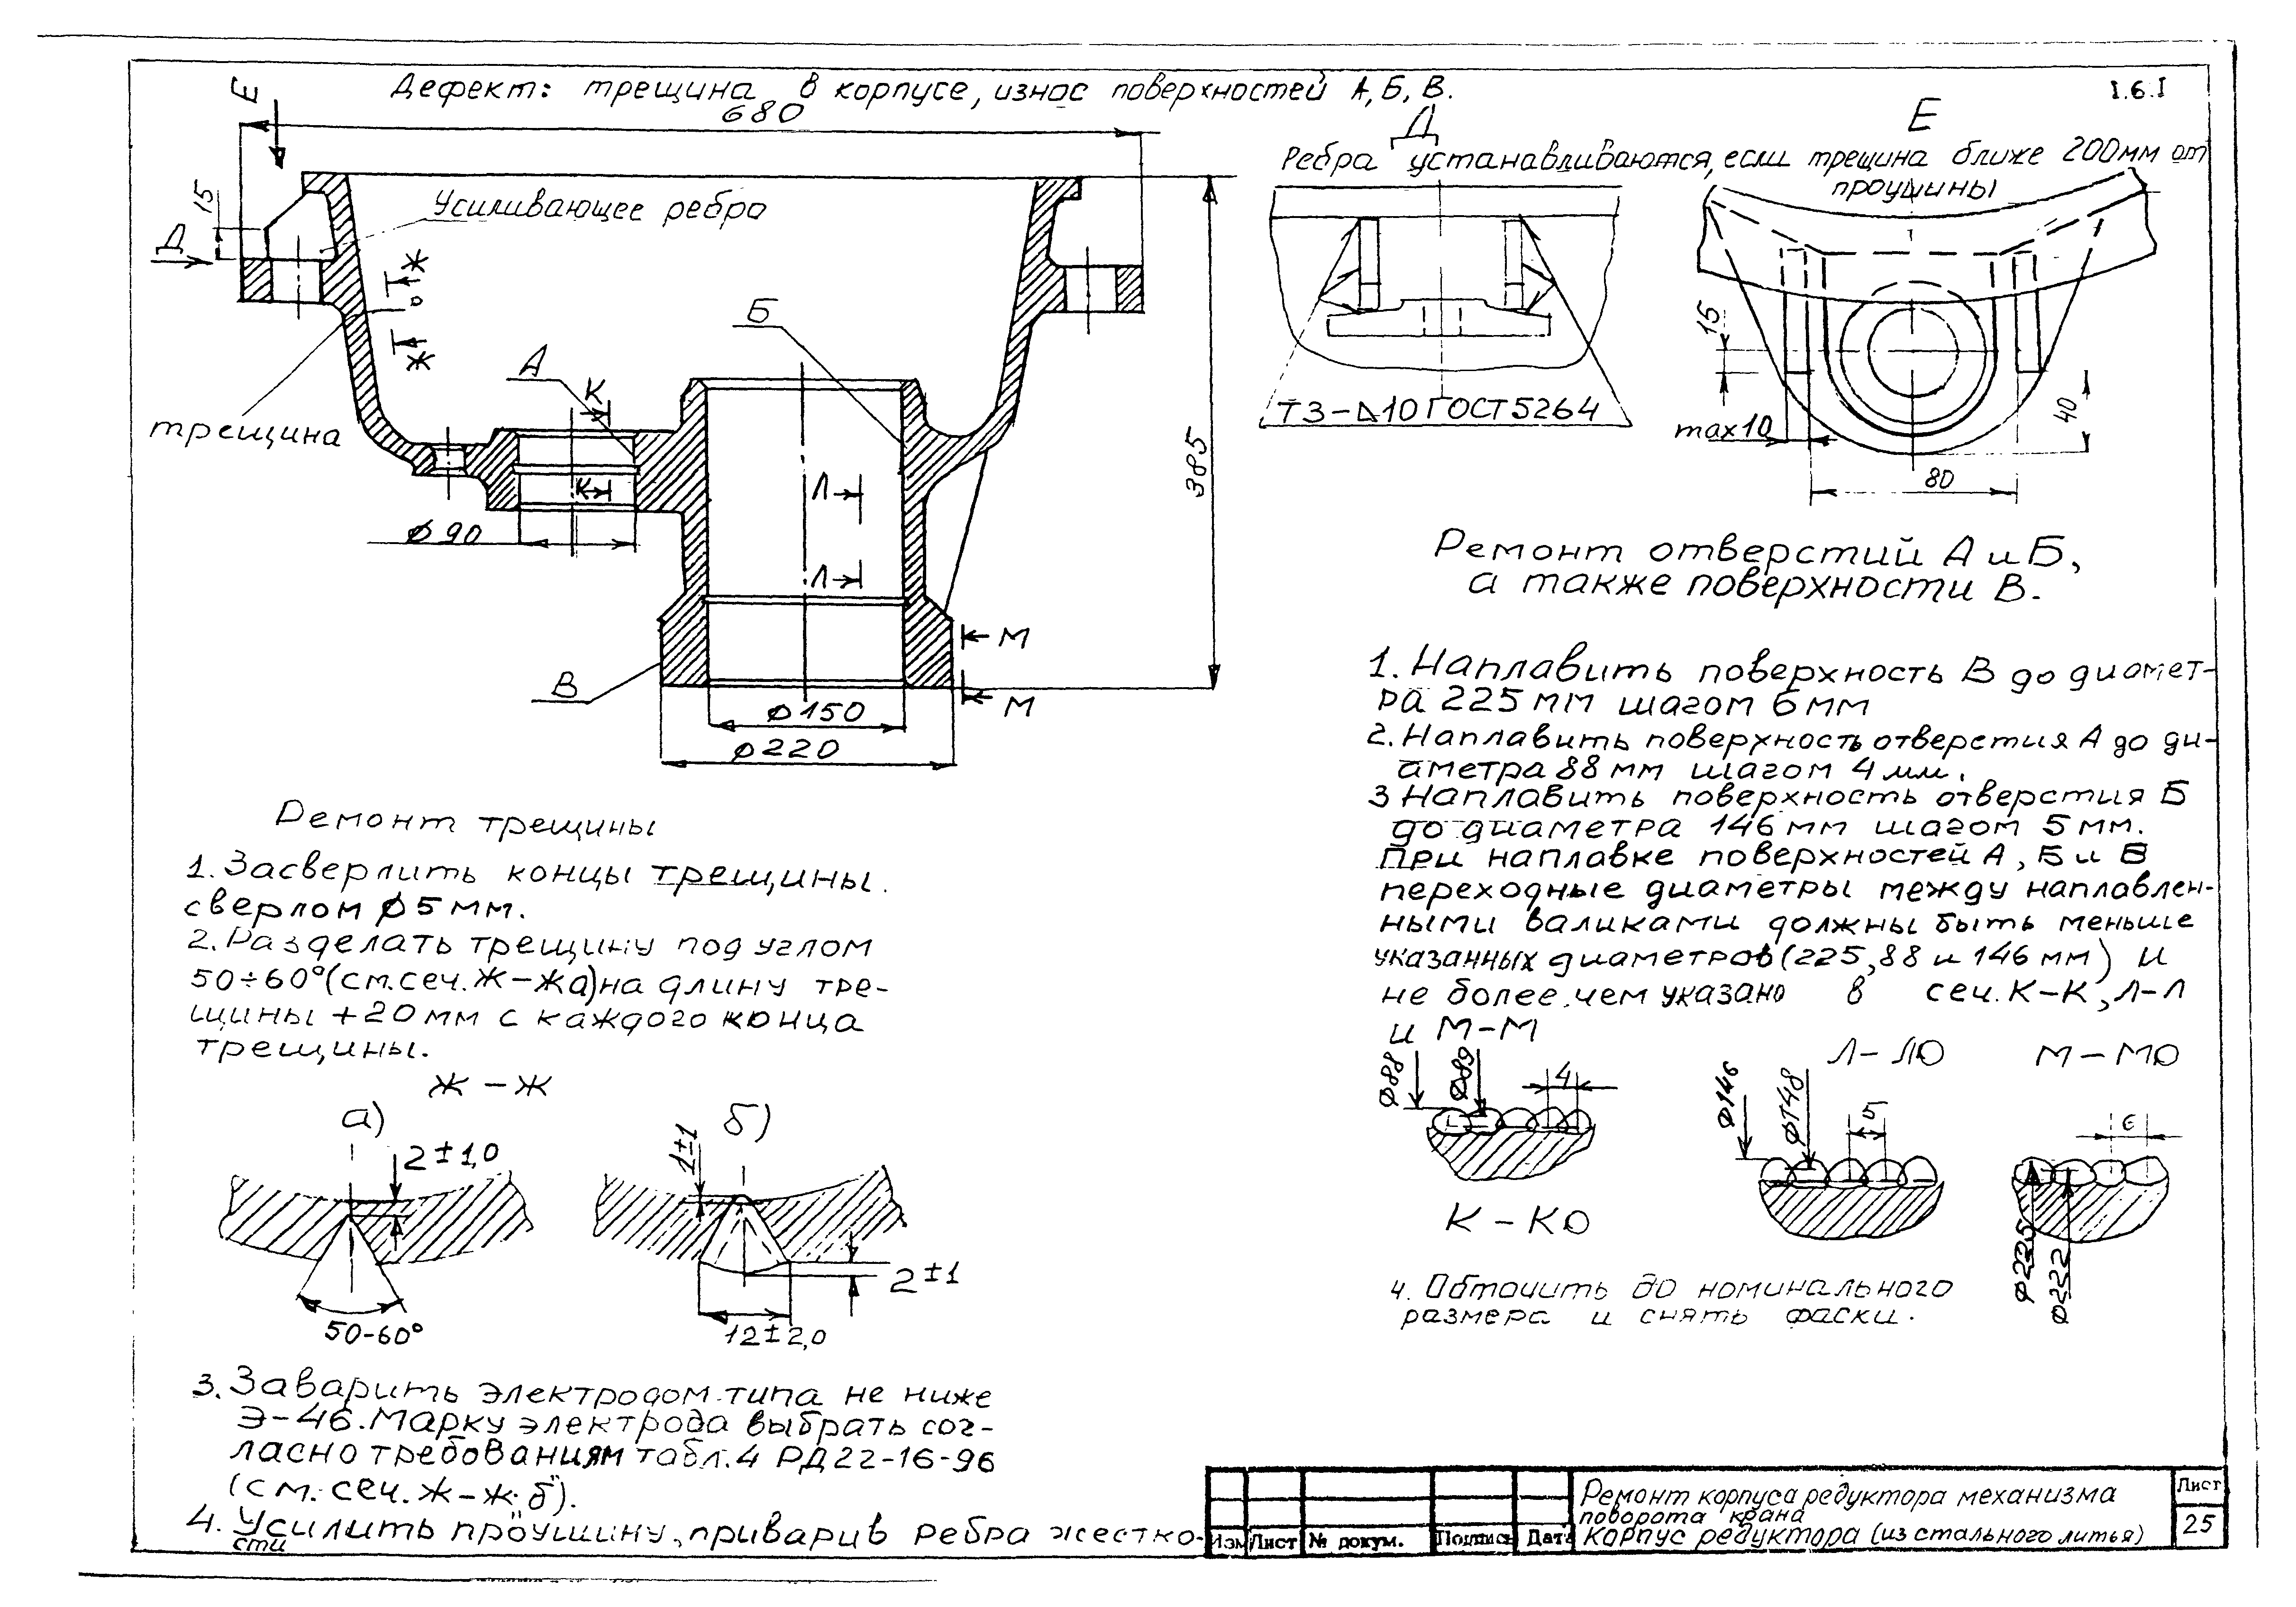 Дефект: трещина в корпусе, износ поверхностей А, Б, В.
I.6.I
680
Е
Д
Е
Ребра устанавливаются, если трещина ближе 200мм от
проушины
15
Усиливающее ребро
Д
Ж
Ж
трещина
Б
А
К
К
Л
Л
М
М
В
385
Ø90
Ø150
Ø220
Т3-⊿10 ГОСТ 5264
15
max 10
40
80
Ремонт отверстий А и Б,
а также поверхности В.
1. Наплавить поверхность В до диамет-
ра 225 мм шагом 6 мм
2. Наплавить поверхность отверстия А до ди-
аметра 88 мм шагом 4 мм.
3 Наплавить поверхность отверстия Б
до диаметра 146 мм шагом 5 мм.
При наплавке поверхностей А, Б и В
переходные диаметры между наплавлен-
ными валиками должны быть меньше
указанных диаметров (225, 88 и 146 мм) и
не более, чем указано в сеч. К-К, Л-Л
и М-М
Ø88
Ø89
4
К-К
Л-Л
Ø146
Ø148
5
М-М
6
Ø225
Ø222
4. Обточить до номинального
размера и снять фаски.
Ремонт трещины
1. Засверлить концы трещины
сверлом Ø5 мм.
2. Разделать трещину под углом
50÷60° (см. сеч. Ж-Жа) на длину тре-
щины +20 мм с каждого конца
трещины.
Ж-Ж
а)
2±1,0
50-60°
б)
1±1
2±1
12±2,0
3. Заварить электродом типа не ниже
Э-46. Марку электрода выбрать сог-
ласно требованиям табл. 4 РД 22-16-96
(см. сеч. Ж-Ж,,б").
4. Усилить проушину, приварив ребра жестко-
сти
Изм Лист № докум. Подпись Дата
Ремонт корпуса редуктора механизма
поворота крана
Корпус редуктора (из стального литья)
Лист
25